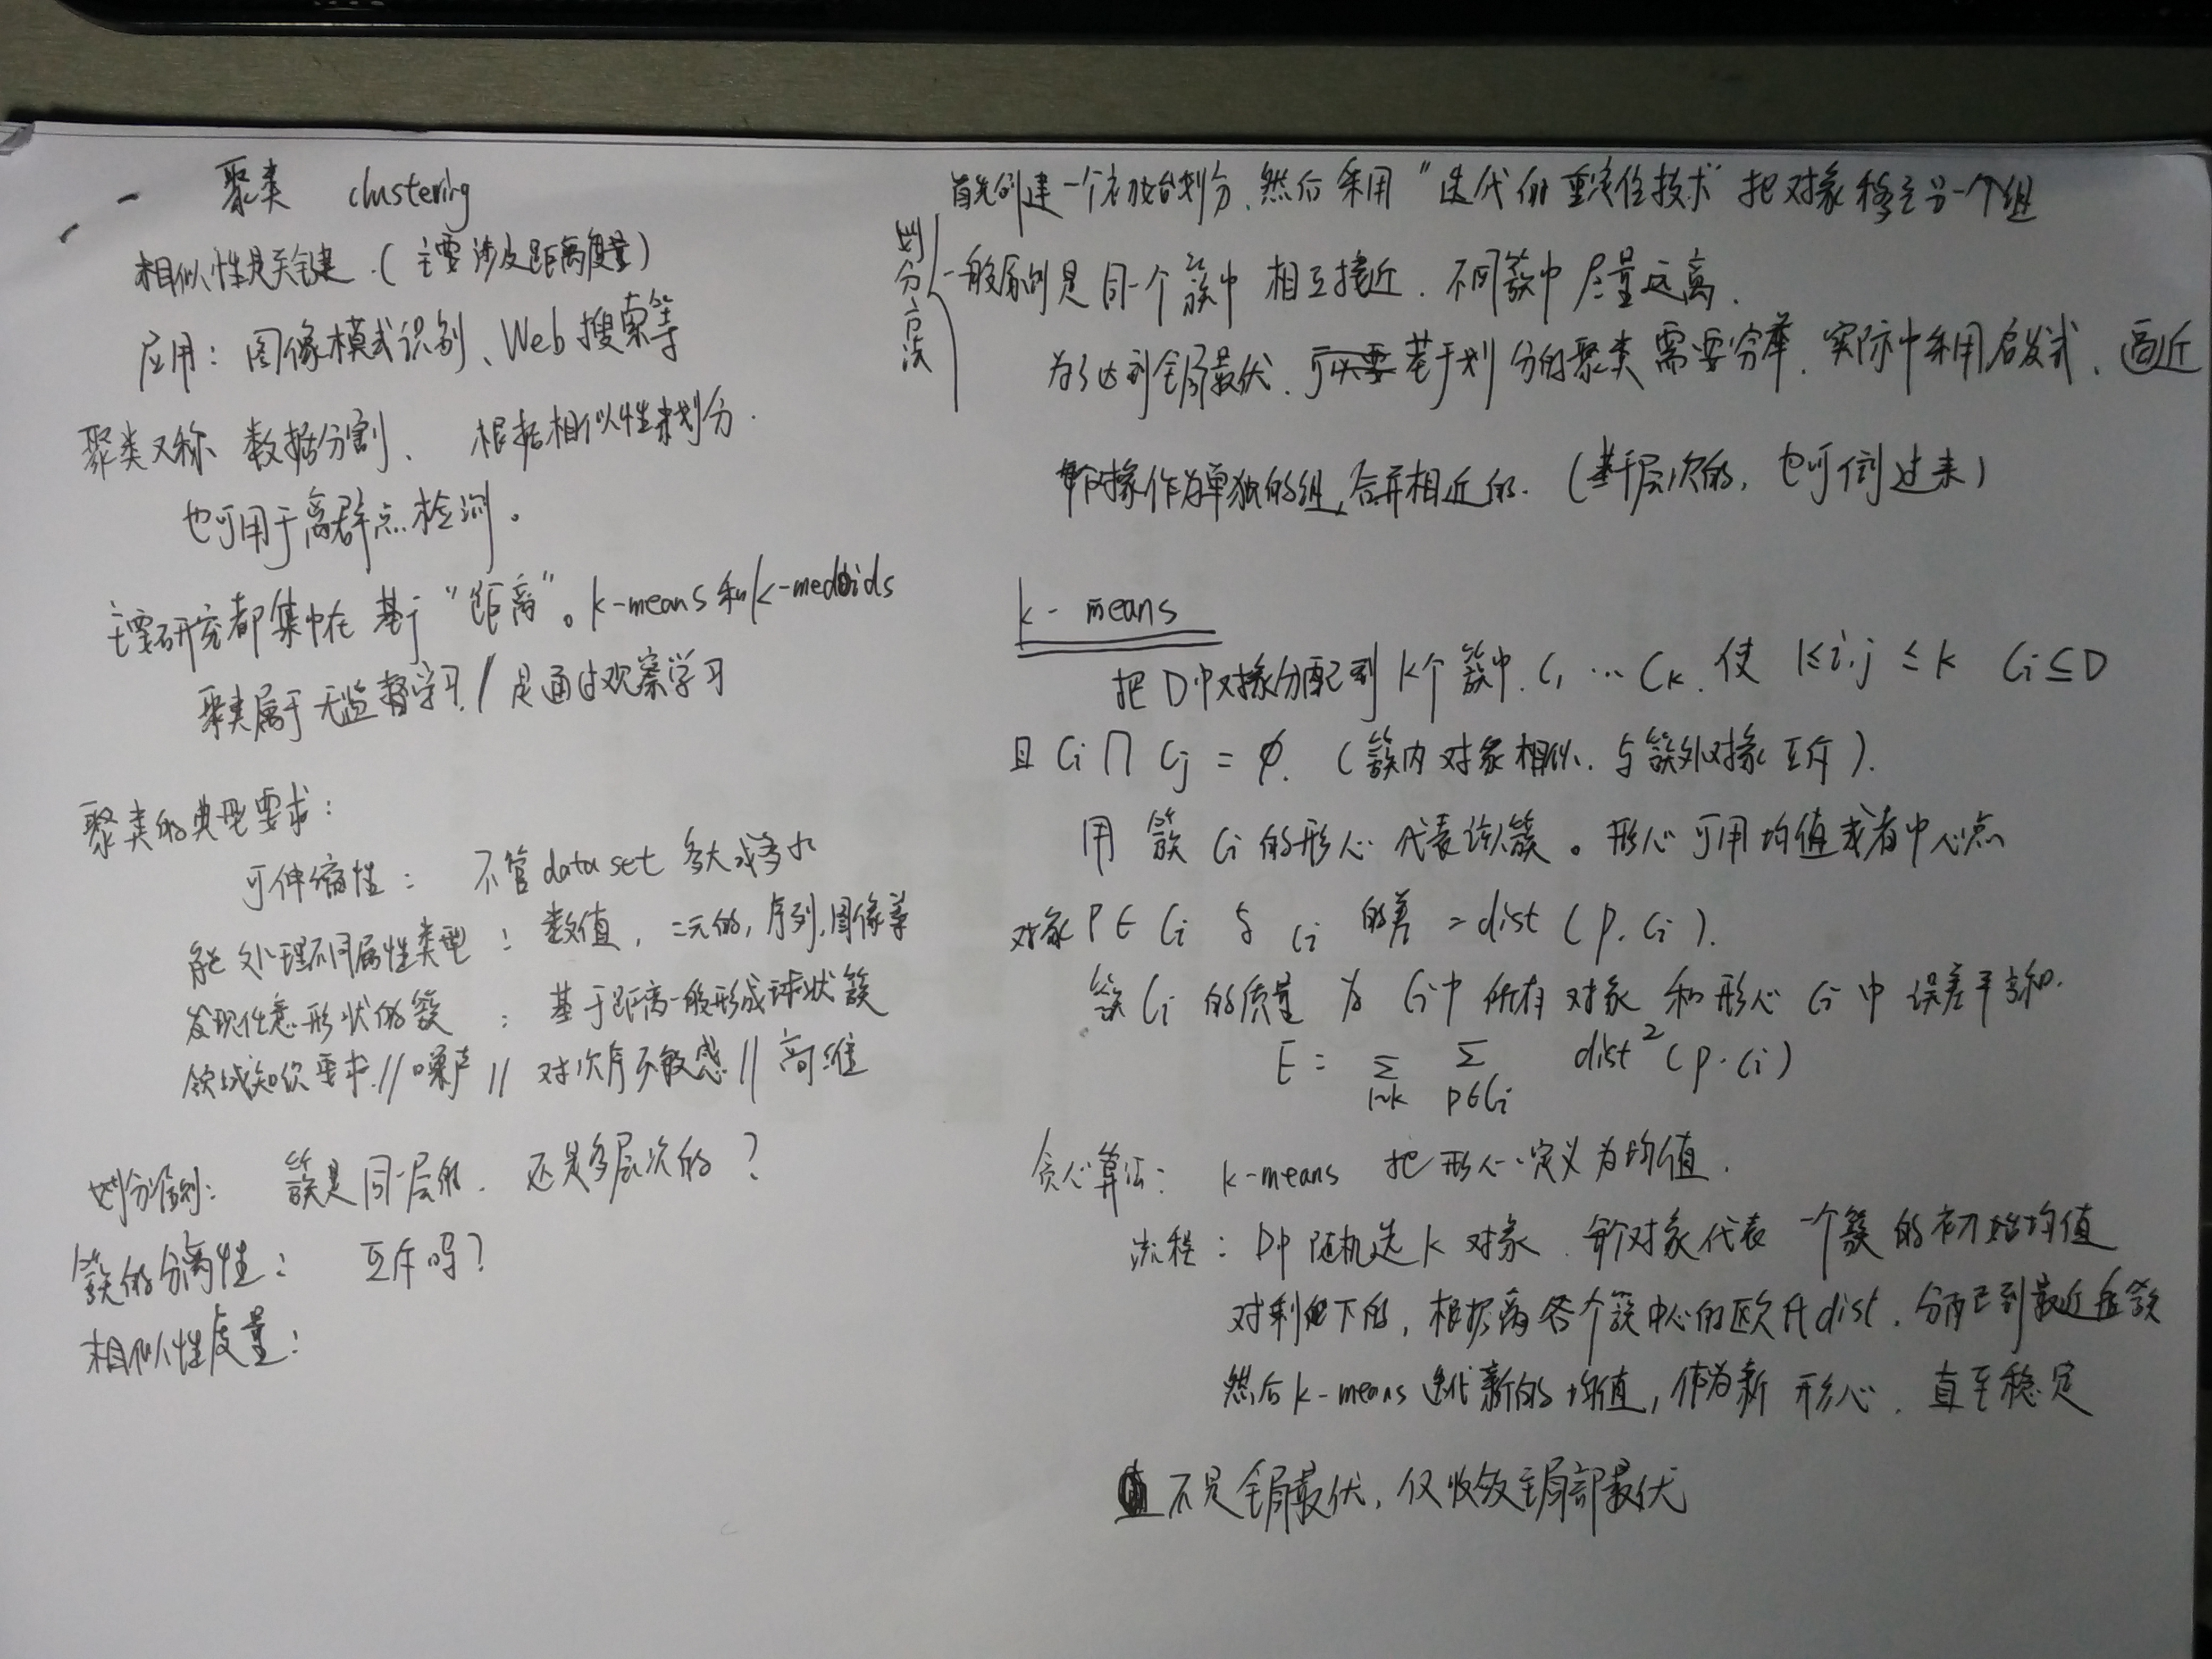 聚类 clustering
相似性是关键.(主要涉及距离度量)
应用: 图像模式识别、Web搜索等
聚类又称 数据分割、 根据相似性来划分.
也可用于离群点检测。
主要研究都集中在 基于 "距离"。k-means和k-medoids
聚类属于无监督学习 // 是通过观察学习
聚类的典型要求:
可伸缩性: 不管 data set 多大或多小
能处理不同属性类型: 数值, 二元的, 序列, 图像等
发现任意形状的簇: 基于距离一般形成球状簇
领域知识要求 // 噪声 // 对次序不敏感 // 高维
划分准则: 簇是同一层的. 还是多层次的?
簇的分离性: 互斥吗?
相似性度量:
划分方法
首先创建一个初始划分.然后采用"迭代的重定位技术"把对象移至另一个组
一般原则是 同一个簇中 相互接近. 不同簇中 尽量远离.
为了达到全局最优. 基于划分的聚类需要穷举. 实际中采用启发式、逼近
每个对象作为单独的组,合并相近的. (基于层次的, 也可倒过来)
k-means
把D中对象分配到k个簇中. C₁ … Cₖ. 使 1≤i,j≤k Ci⊆D
且 Ci∩Cj=∅. (簇内对象相似. 与簇外对象互斥).
用 簇 Ci 的形心 代表该簇。形心可用均值或者中心点
对象 P∈Ci 与 ci 的差 = dist (p. ci).
簇Ci 的质量 为 Ci中 所有对象 和形心 ci 中 误差平方和.
E = Σ 1~k Σ p∈Ci dist²(p.ci)
贪心算法: k-means 把形心定义为均值.
流程: D中 随机选 k 对象. 每个对象代表 一个簇 的初始均值
对剩下的, 根据离各个簇中心的欧氏dist. 分配到最近的簇
然后k-means迭代新的均值, 作为新 形心. 直至稳定
不是全局最优, 仅收敛至局部最优